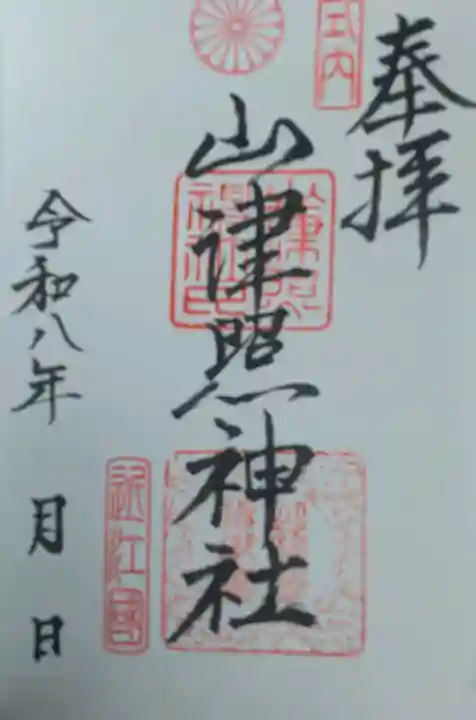 奉拝
式内
山津照神社
近江國
令和八年 月 日